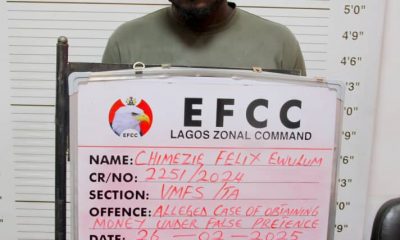 5'0"
EFCC
EFCC
LAGOS ZONAL COMMAND
NAME: CHIMEZIE FELIX EWULUM
CR/NO: 2251/2024
SECTION: VMFS/TA
OFFENCE: ALLEGED CASE OF OBTAINING
MONEY UNDER FALSE PRETENCE
DATE: 26-02-2025